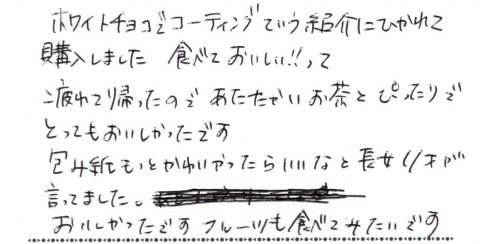 ホワイトチョコでコーティングていう紹介にひかれて
購入しました 食べておいしい!!って
疲れて帰ったので あたたかいお茶とぴったりで
とってもおいしかったです
包み紙もっとかわいかったらいいなと長女11才が
言ってました。
おいしかったです フルーツも食べてみたいです